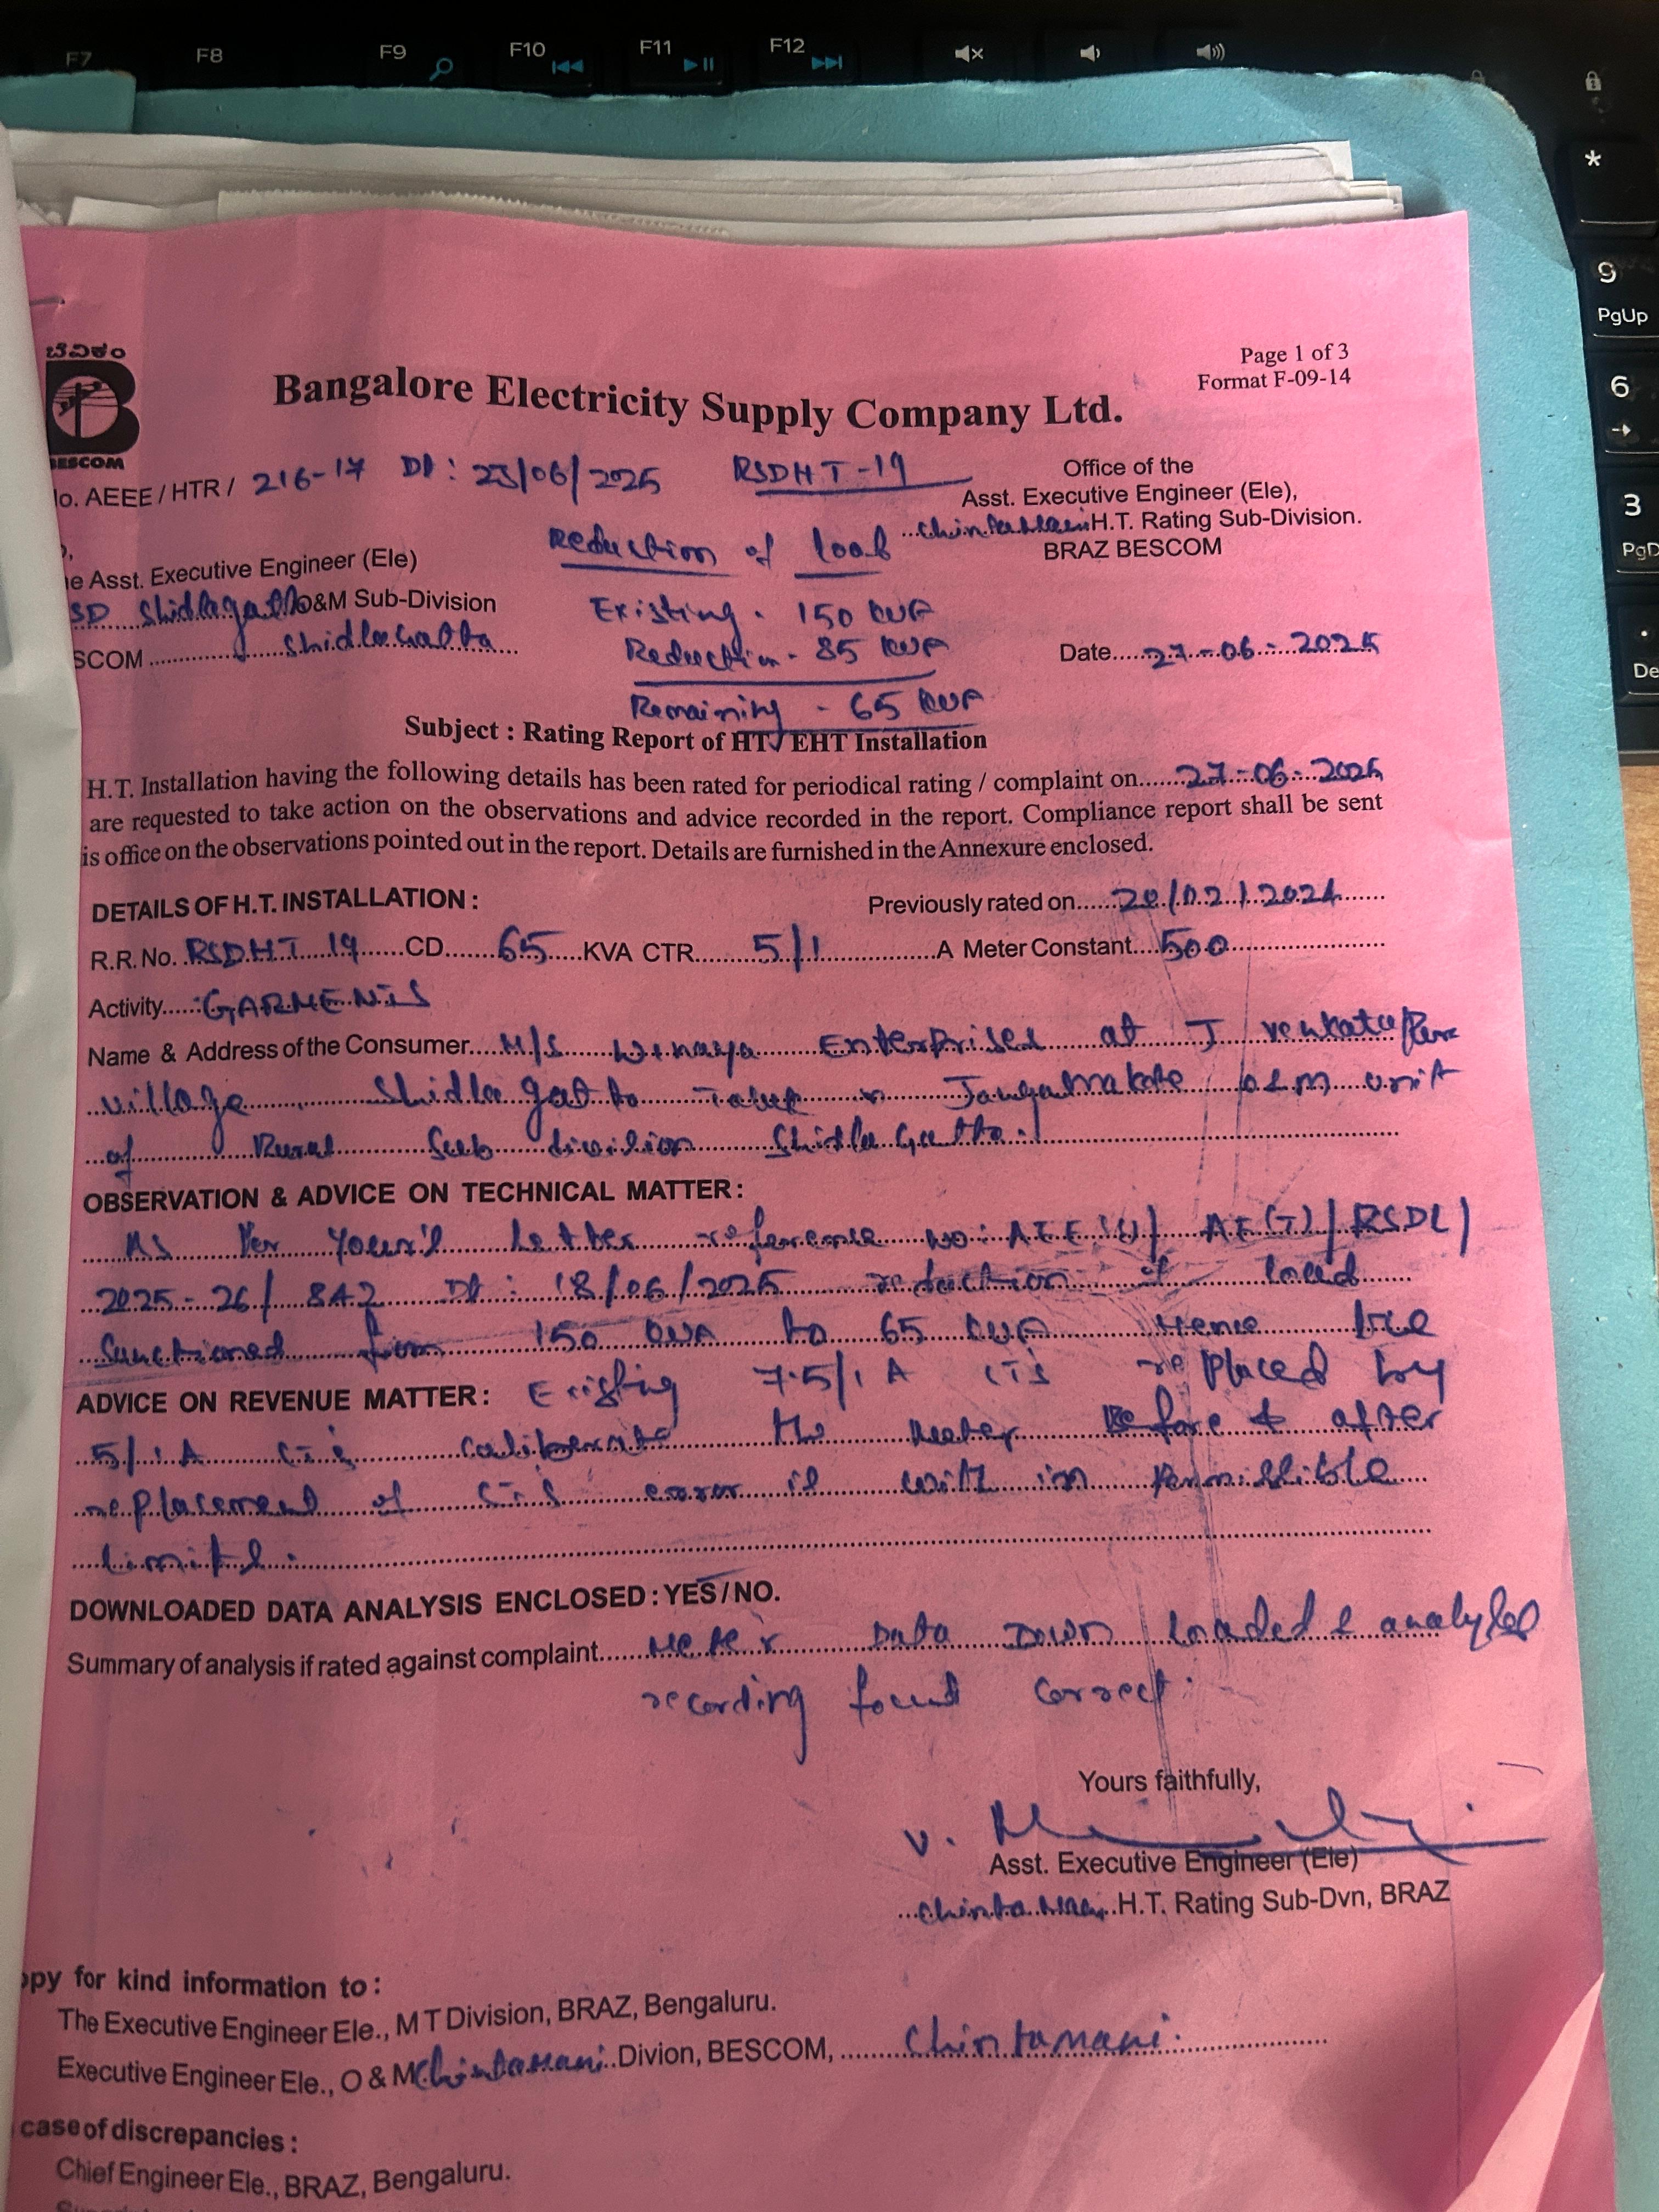 F7 F8 F9 F10 F11 F12
*
9
PgUp
6
3
PgD
.
De
ಬೆವಿಕಂ
BESCOM
Page 1 of 3
Format F-09-14
Bangalore Electricity Supply Company Ltd.
lo. AEEE / HTR / 216-17 Dt : 23/06/2025 RSDHT-19
Office of the
Asst. Executive Engineer (Ele),
Chintamani H.T. Rating Sub-Division.
BRAZ BESCOM
Reduction of load
e Asst. Executive Engineer (Ele)
SD Shidlagatta O&M Sub-Division
SCOM Shidlagatta
Existing - 150 KVA
Reduction - 85 KVA
Remaining - 65 KVA
Date 27-06-2025
Subject : Rating Report of HT / EHT Installation
H.T. Installation having the following details has been rated for periodical rating / complaint on 27-06-2025
are requested to take action on the observations and advice recorded in the report. Compliance report shall be sent
is office on the observations pointed out in the report. Details are furnished in the Annexure enclosed.
DETAILS OF H.T. INSTALLATION : Previously rated on 20/02/2024
R.R. No. RSDHT 19 CD 65 KVA CTR 5/1 A Meter Constant 500
Activity GARMENTS
Name & Address of the Consumer M/s Enterprises at J
village Shidlagatta Taluk in Jangamakote O&M unit
of Rural Sub division Shidlagatta.
OBSERVATION & ADVICE ON TECHNICAL MATTER :
As Per letter reference No: AEE(U)/ AE(T)/RSDL/
2025-26/ 842 Dt : 18/06/2025 reduction of load
Sanctioned from 150 KVA to 65 KVA Hence the
ADVICE ON REVENUE MATTER : Existing 7.5/1 A CTs replaced by
5/1 A CTs the Meter Before & after
replacement of CTs error is with in
limits.
DOWNLOADED DATA ANALYSIS ENCLOSED : YES / NO.
Summary of analysis if rated against complaint Meter Data Down loaded &
recording found correct.
Yours faithfully,
Asst. Executive Engineer (Ele)
Chintamani H.T. Rating Sub-Dvn, BRAZ
opy for kind information to :
The Executive Engineer Ele., M T Division, BRAZ, Bengaluru.
Executive Engineer Ele., O & M Chintamani Divion, BESCOM, Chintamani.
case of discrepancies :
Chief Engineer Ele., BRAZ, Bengaluru.